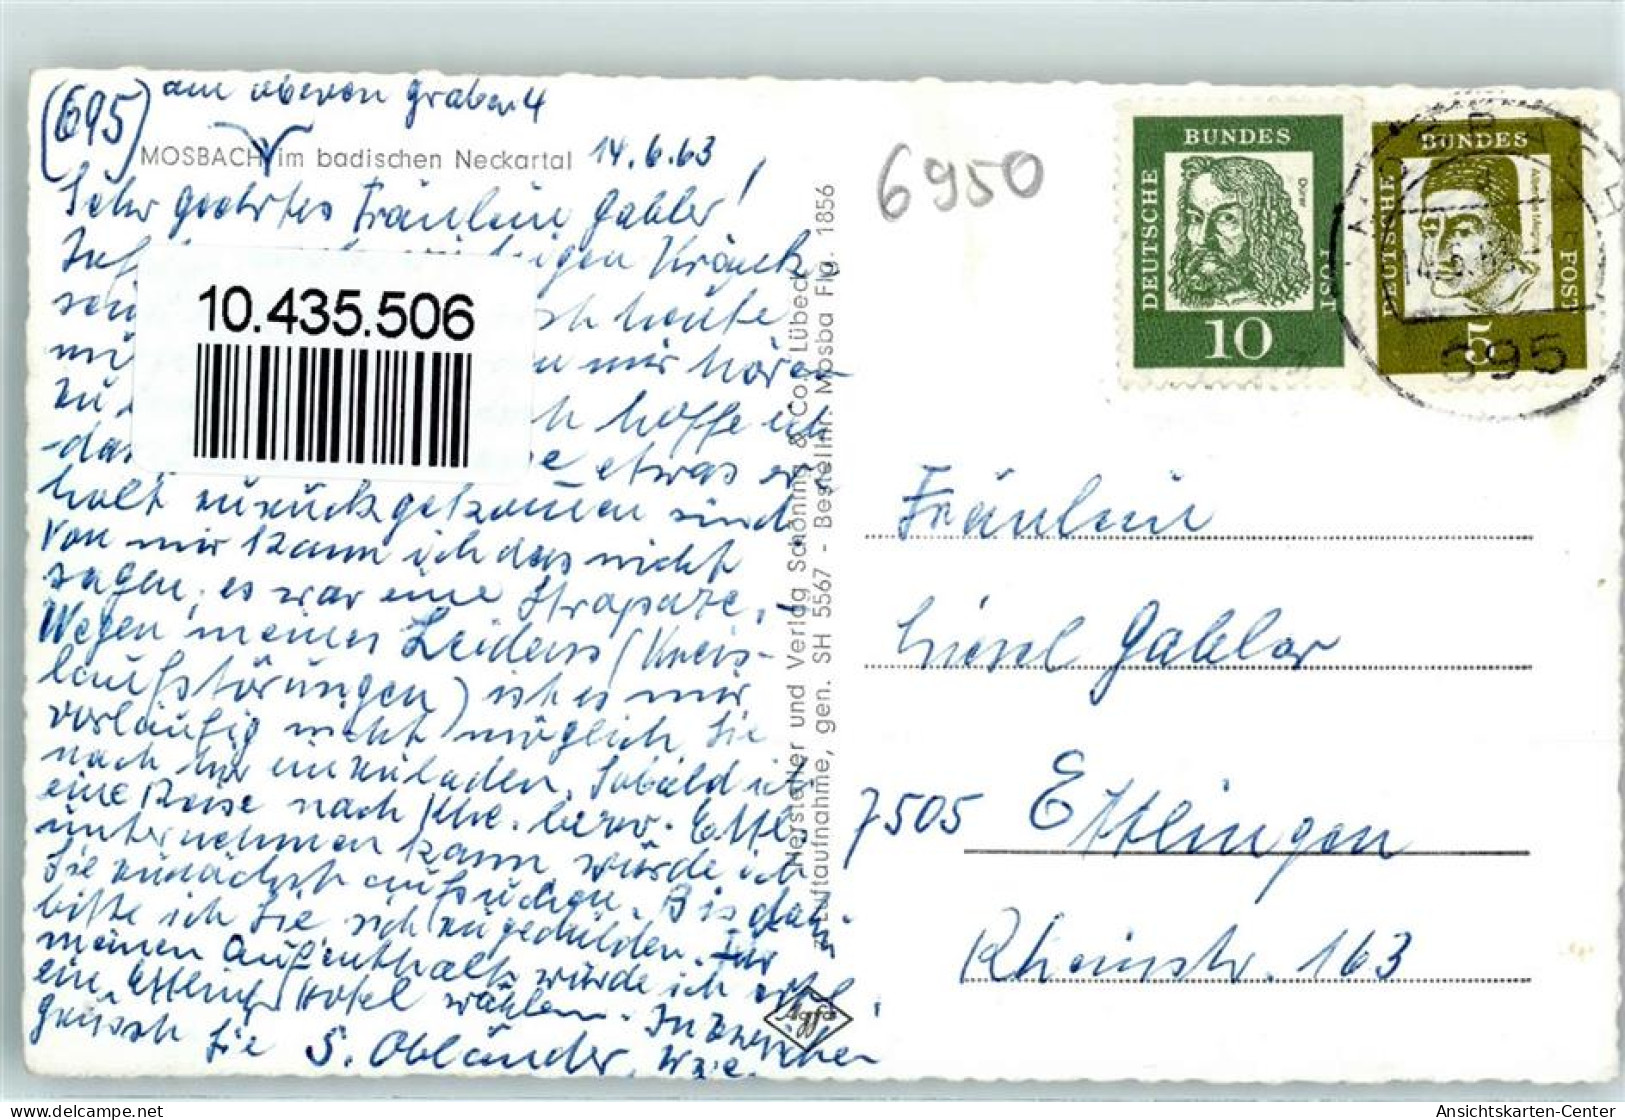 (695) am oberen Graben 4
MOSBACH im badischen Neckartal 14.6.63
Sehr geehrtes Fräulein Gabler!
Kränk
sei sch heute
mi en mir hören
zu ch hoffe ich
das e etwas er-
holt zurückgekommen sind
Von mir kann ich das nicht
sagen, es war eine Strapaze,
Wegen meines Leidens (Kreis-
laufstörungen) ist es mir
vorläufig nicht möglich Sie
nach hier einzuladen. Sobald ich
eine Reise nach Khe. bezw. Ettl.
unternehmen kann würde ich
Sie zunächst aufsuchen. Bis dahin
bitte ich Sie sich zu gedulden. Für
meinen Aufenthalt würde ich
ein Hotel wählen. Inzwischen
Sie S. Obländer, Wwe.
10.435.506
Hersteller und Verlag Schöning & Co., Lübeck
Luftaufnahme, gen. SH 5567 - Bestellnr. Mosba Flg. 1856
Agfa
6950
DEUTSCHE BUNDES POST
Dürer
10
DEUTSCHE BUNDES POST
Albertus Magnus
5
MOSBACH
695
Fräulein
Liesel Gabler
7505 Ettlingen
Rheinstr. 163
Ansichtskarten-Center